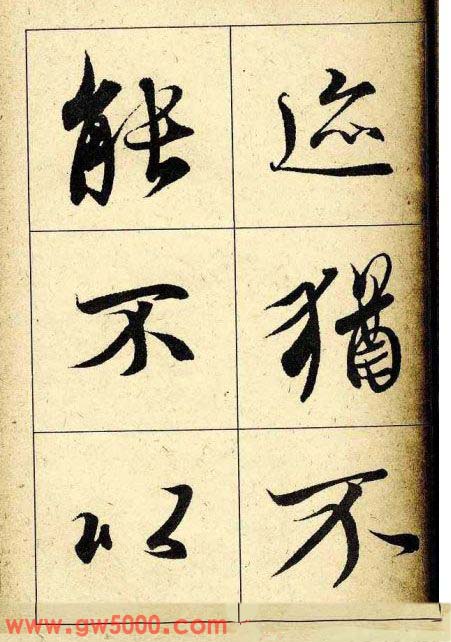 迹猶不
能不以
www.gw5000.com